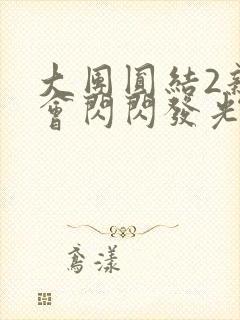 大團圓結2
會閃閃發光
漾